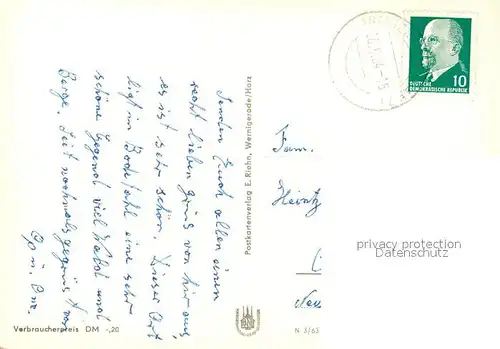 Senden Euch allen einen
recht lieben Gruß von hier aus
es ist sehr schön. Dieser Ort
liegt im Bodetahl eine sehr
schöne Gegend viel Wald und
Berge. Seit nochmals gegrüßt von
Postkartenverlag E. Riehn, Wernigerode/Harz
DEUTSCHE
DEMOKRATISCHE REPUBLIK
10
Fam.
Heintz
privacy protection
Datenschutz
Verbraucherpreis DM -,20
N 3/63